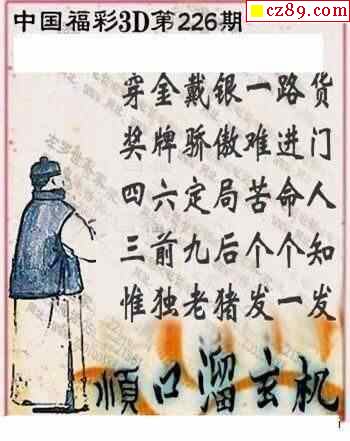 cz89.com
中国福彩3D第226期
穿金戴银一路货
奖牌骄傲难进门
四六定局苦命人
三前九后个个知
惟独老猪发一发
顺口溜玄机